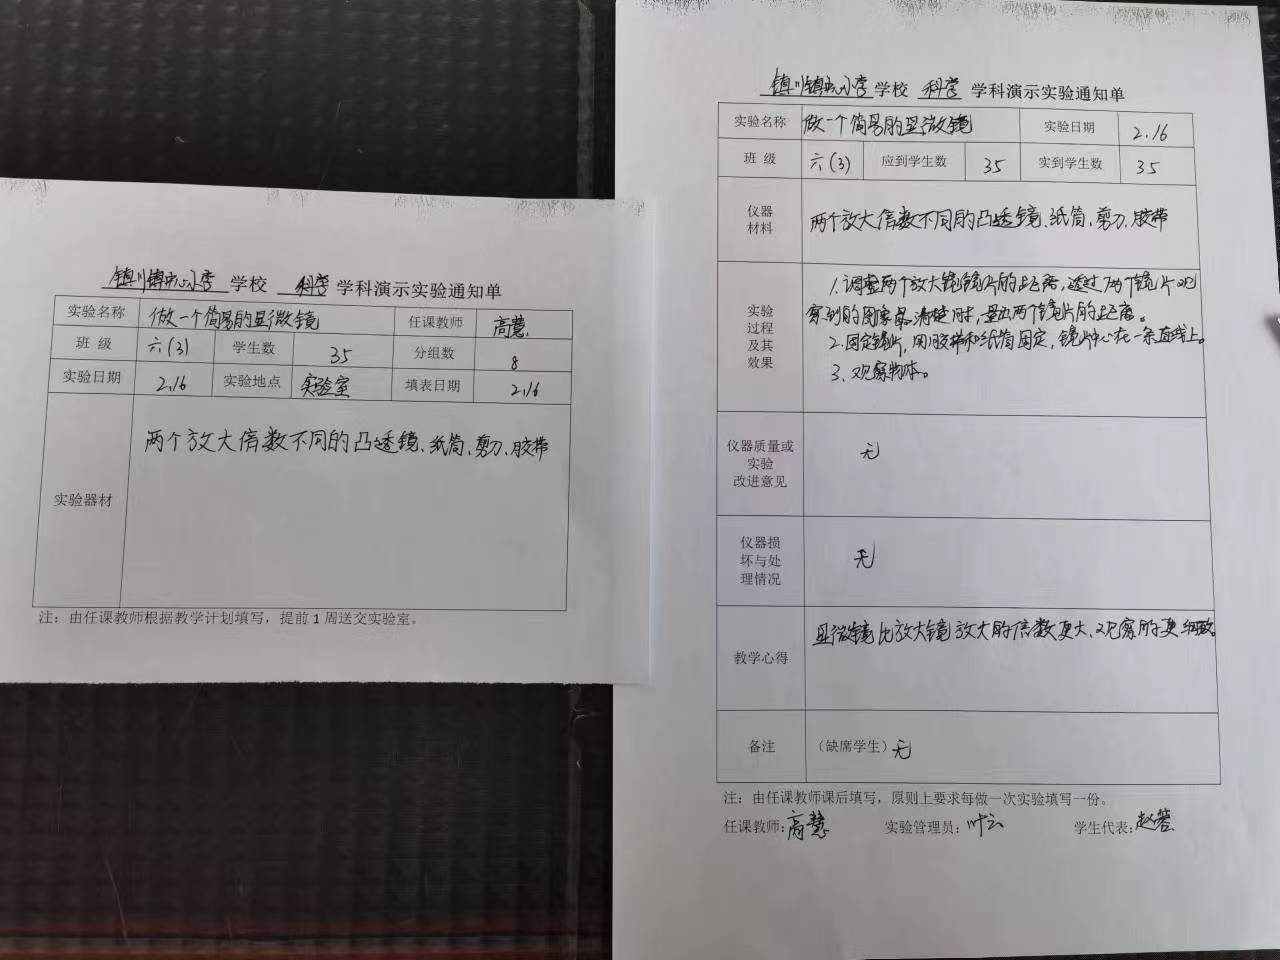 镇川镇中心小学 学校 科学 学科演示实验通知单
实验名称 做一个简易的显微镜 任课教师 高慧
班 级 六(3) 学生数 35 分组数 8
实验日期 2.16 实验地点 实验室 填表日期 2.16
实验器材 两个放大倍数不同的凸透镜、纸筒、剪刀、胶带
注：由任课教师根据教学计划填写，提前1周送交实验室。
镇川镇中心小学 学校 科学 学科演示实验通知单
实验名称 做一个简易的显微镜 实验日期 2.16
班 级 六(3) 应到学生数 35 实到学生数 35
仪器
材料
两个放大倍数不同的凸透镜、纸筒、剪刀、胶带
实验
过程
及其
效果
1.调整两个放大镜镜片的距离，透过两个镜片观
察到的图象最清楚时，量出两个镜片的距离。
2.固定镜片，用胶带和纸筒固定，镜片中心在一条直线上。
3、观察物体。
仪器质量或
实验
改进意见
无
仪器损
坏与处
理情况
无
教学心得 显微镜比放大镜放大的倍数更大，观察的更细致。
备注 （缺席学生）无
注：由任课教师课后填写，原则上要求每做一次实验填写一份。
任课教师：高慧 实验管理员：叶云 学生代表：赵蕾